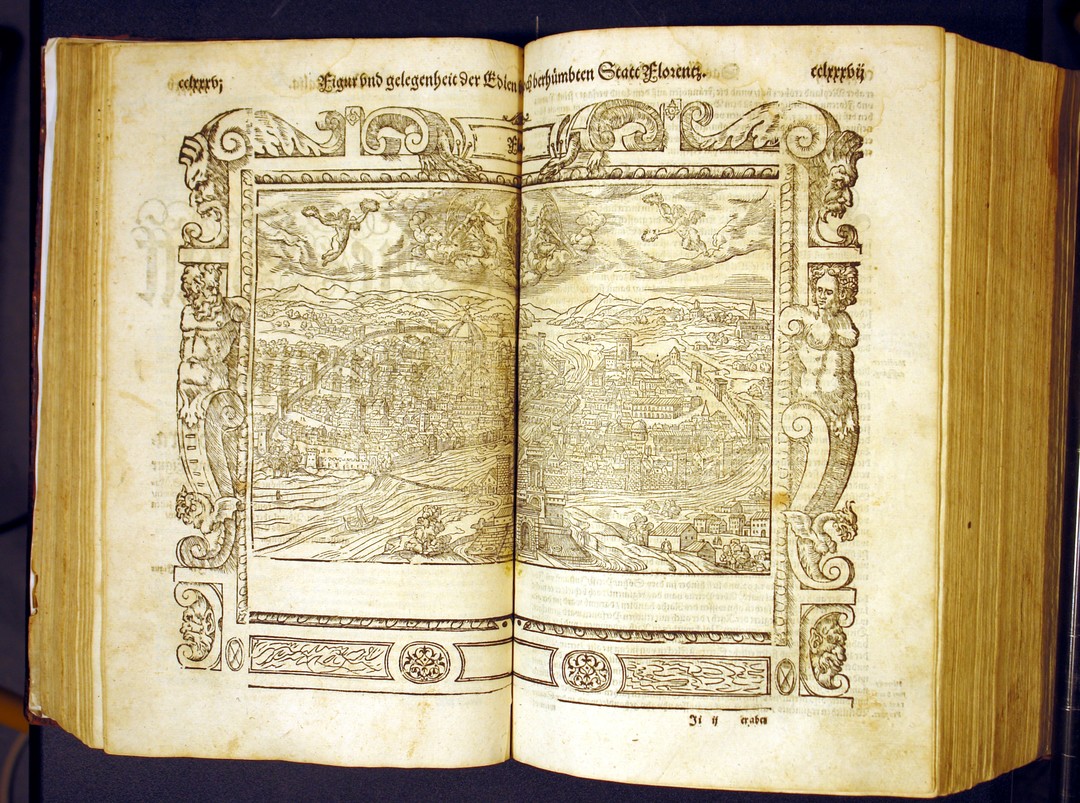 cclxxxvj
Figur vnd gelegenheit der Edlen hochberhümbten Statt Florentz.
cclxxxvij
Ii ij
eraben